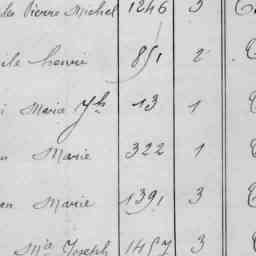 Pierre Michel 1246 3
ile henri 851 2
i Marie Jh 13 1
n Marie 322 1
en Marie 1391 3
Mie Joseph 1457 3